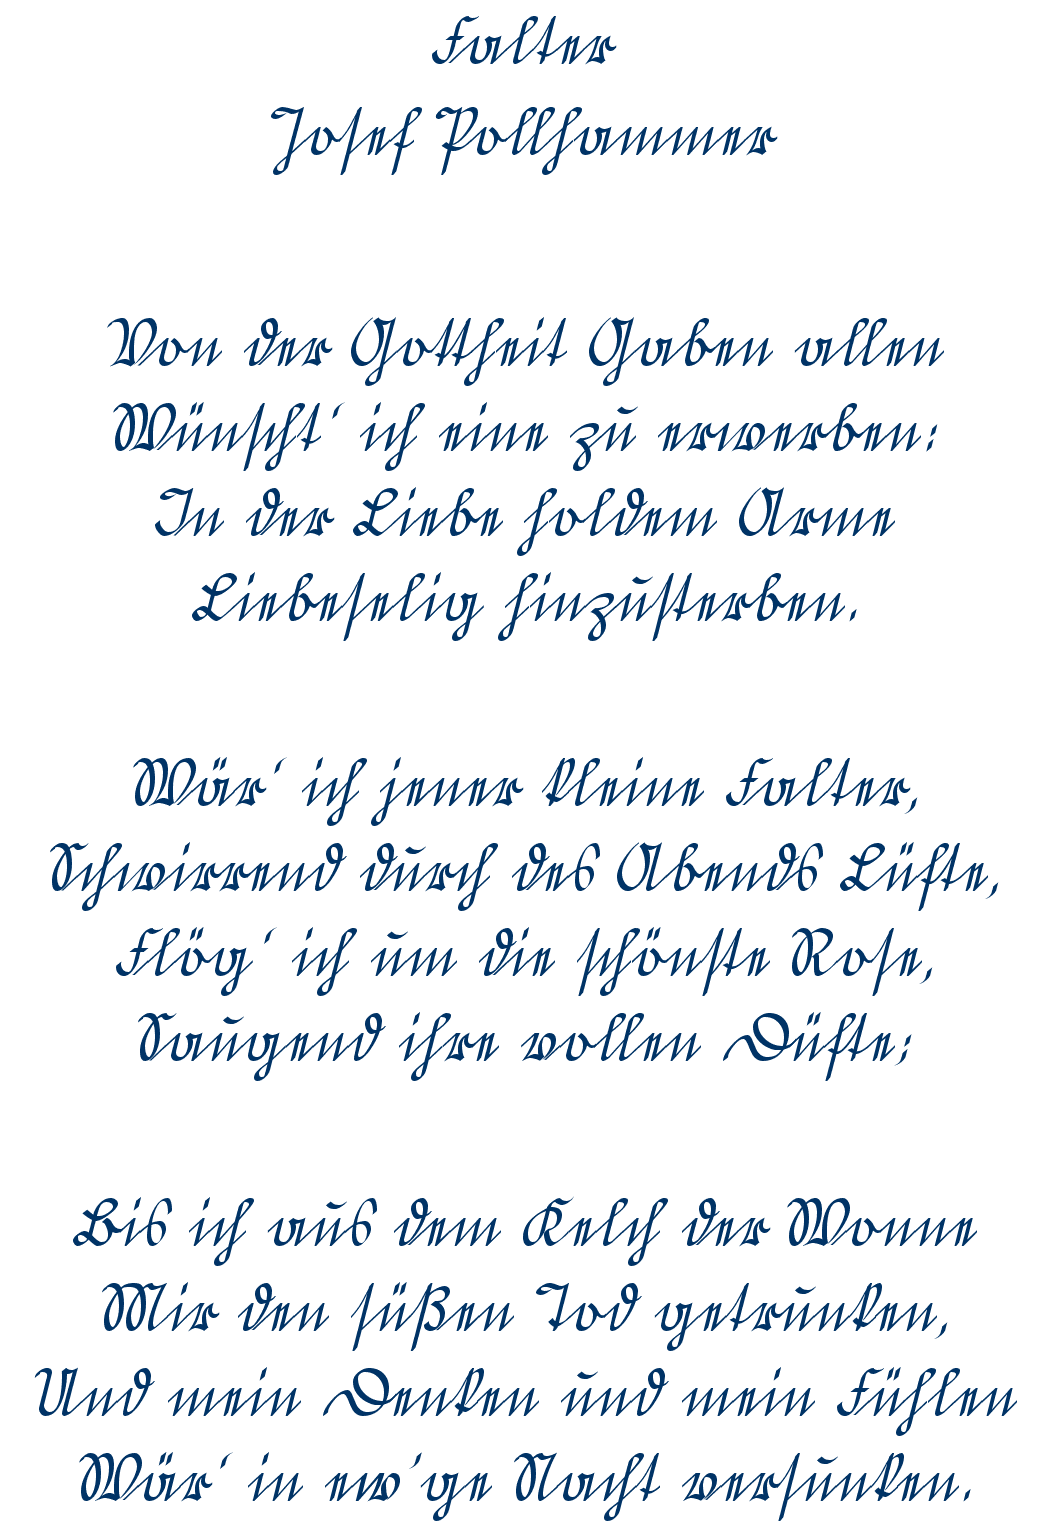 Falter
Josef Pollhammer
Von der Gottheit Gaben allen
Wünscht' ich eine zu erwerben:
In der Liebe holdem Arme
Liebeselig hinzusterben.
Wär' ich jener kleine Falter,
Schwirrend durch des Abends Lüfte,
Flög' ich um die schönste Rose,
Saugend ihre vollen Düfte;
Bis ich aus dem Kelch der Wonne
Mir den süßen Tod getrunken,
Und mein Denken und mein Fühlen
Wär' in ew'ge Nacht versunken.